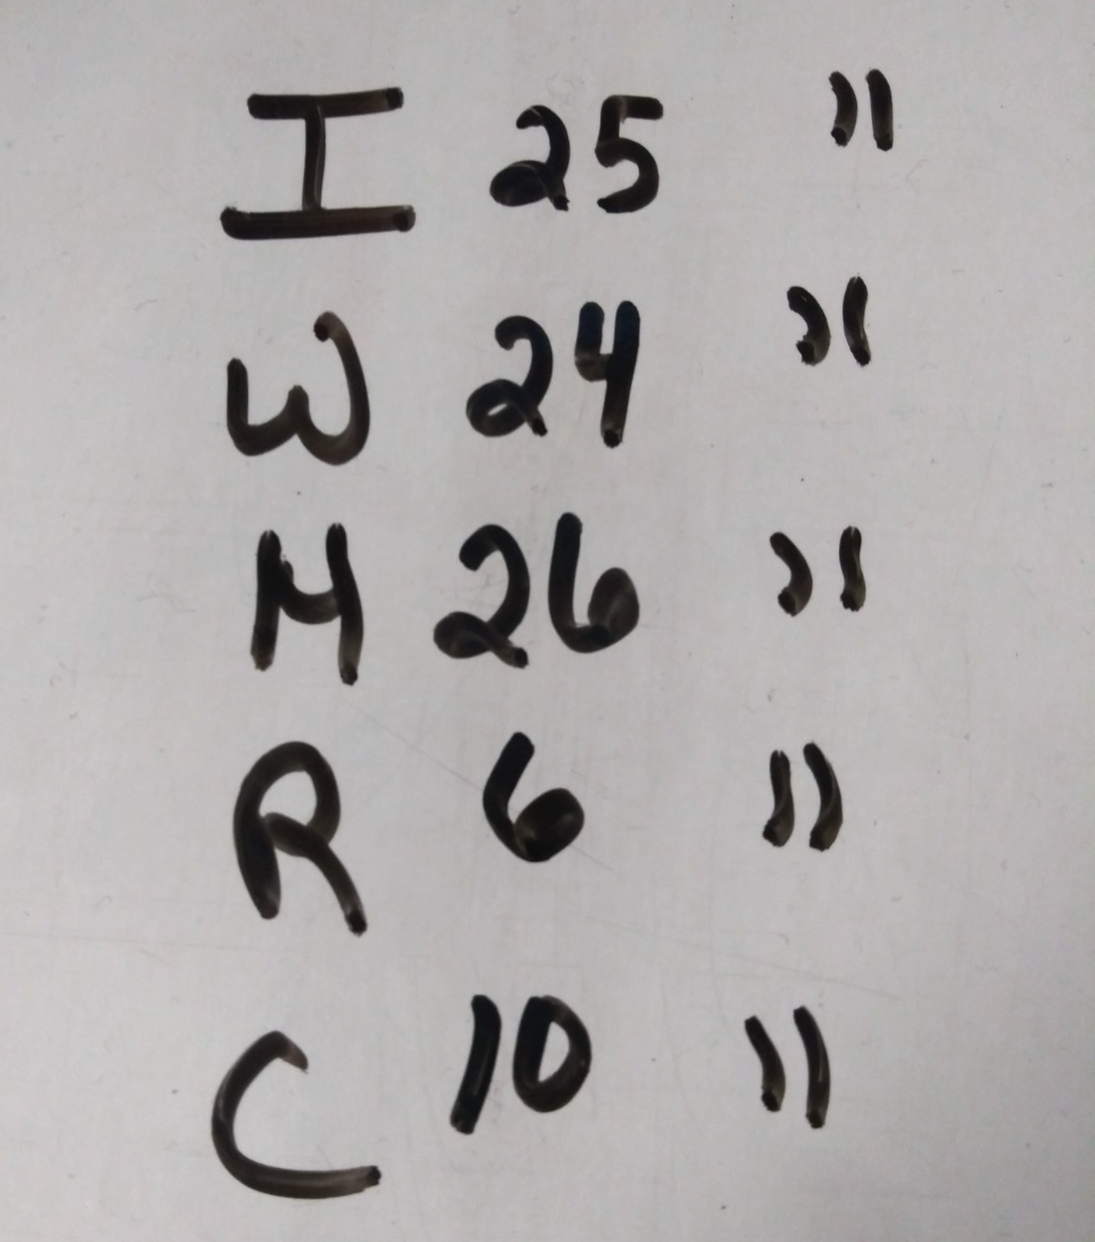 I 25 "
W 24 "
M 26 "
R 6 "
C 10 "